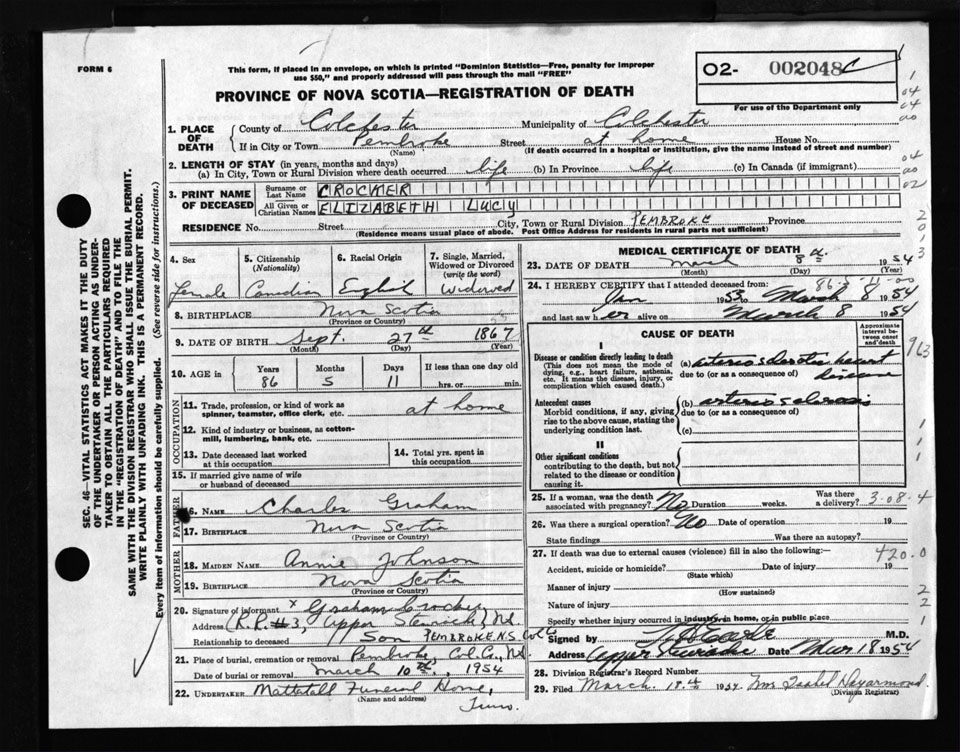 FORM 6
This form, if placed in an envelope, on which is printed "Dominion Statistics—Free, penalty for improper
use $50," and properly addressed will pass through the mail "FREE"
O2- 002048 C
For use of the Department only
PROVINCE OF NOVA SCOTIA—REGISTRATION OF DEATH
1. PLACE OF DEATH
County of Colchester Municipality of Colchester
If in City or Town Pembroke Street at home House No.
(Name) (If death occurred in a hospital or institution, give the name instead of street and number)
2. LENGTH OF STAY (in years, months and days)
(a) In City, Town or Rural Division where death occurred life (b) In Province life (c) In Canada (if immigrant)
3. PRINT NAME OF DECEASED
Surname or Last Name CROCKER
All Given or Christian Names ELIZABETH LUCY
RESIDENCE No. Street City, Town or Rural Division PEMBROKE Province
(Residence means usual place of abode. Post Office Address for residents in rural parts not sufficient)
4. Sex
Female
5. Citizenship
(Nationality)
Canadian
6. Racial Origin
English
7. Single, Married,
Widowed or Divorced
(write the word)
Widowed
8. BIRTHPLACE Nova Scotia
(Province or Country)
9. DATE OF BIRTH Sept. 27th 1867
(Month) (Day) (Year)
10. AGE in
Years Months Days If less than one day old
86 5 11 hrs. or min.
OCCUPATION
11. Trade, profession, or kind of work as
spinner, teamster, office clerk, etc. at home
12. Kind of industry or business, as cotton-
mill, lumbering, bank, etc.
13. Date deceased last worked
at this occupation
14. Total yrs. spent in
this occupation
15. If married give name of wife
or husband of deceased
FATHER
16. NAME Charles Graham
17. BIRTHPLACE Nova Scotia
(Province or Country)
MOTHER
18. MAIDEN NAME Annie Johnson
19. BIRTHPLACE Nova Scotia
(Province or Country)
20. Signature of informant x Graham Crocker
Address R.R.#3, Upper Stewiacke, N.S.
Relationship to deceased Son PEMBROKE N.S. Col Co
21. Place of burial, cremation or removal Pembroke, Col. Co., N.S.
Date of burial or removal March 10th, 1954
22. UNDERTAKER Mattatall Funeral Home,
(Name and address) Truro.
MEDICAL CERTIFICATE OF DEATH
23. DATE OF DEATH March 8th 1954
(Month) (Day) (Year)
24. I HEREBY CERTIFY that I attended deceased from:
Jan 1953 to March 8 1954
and last saw her alive on March 8 1954
CAUSE OF DEATH
Approximate
interval be-
tween onset
and death
I
Disease or condition directly leading to death
(This does not mean the mode of
dying, e.g., heart failure, asthenia,
etc. It means the disease, injury, or
complication which caused death.)
(a) arteriosclerotic heart
due to (or as a consequence of) disease
Antecedent causes
Morbid conditions, if any, giving
rise to the above cause, stating the
underlying condition last.
(b) arteriosclerosis
due to (or as a consequence of)
(c)
II
Other significant conditions
contributing to the death, but not
related to the disease or condition
causing it.
25. If a woman, was the death
associated with pregnancy? No Duration weeks. Was there
a delivery? 3-08-4
26. Was there a surgical operation? No Date of operation 19
State findings Was there an autopsy?
27. If death was due to external causes (violence) fill in also the following:—
420.0
Accident, suicide or homicide? Date of injury 19
(State which)
Manner of injury
(How sustained)
Nature of injury
Specify whether injury occurred in industry, in home, or in public place
Signed by M.D.
Address Upper Stewiacke Date Mar 18 1954
28. Division Registrar's Record Number
29. Filed March 18th 1954 Mrs Isabel Deyarmond
(Division Registrar)
SEC. 46—VITAL STATISTICS ACT MAKES IT THE DUTY
OF THE UNDERTAKER OR PERSON ACTING AS UNDER-
TAKER TO OBTAIN ALL THE PARTICULARS REQUIRED
IN THE "REGISTRATION OF DEATH" AND TO FILE THE
SAME WITH THE DIVISION REGISTRAR WHO SHALL ISSUE THE BURIAL PERMIT.
WRITE PLAINLY WITH UNFADING INK. THIS IS A PERMANENT RECORD.
Every item of information should be carefully supplied. (See reverse side for instructions.)